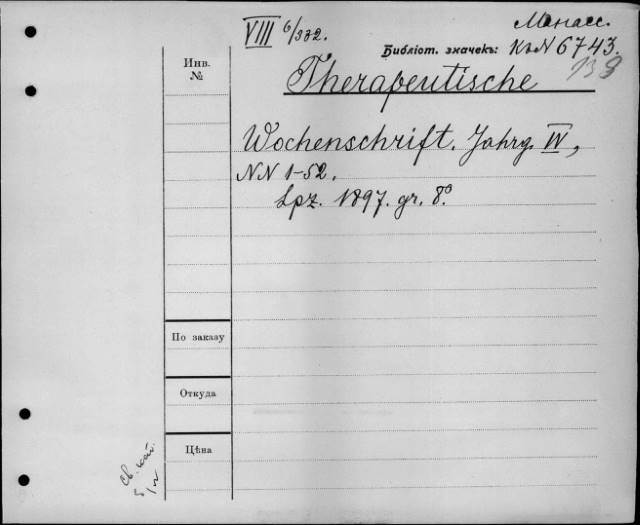 VIII 6/332.
Менасс.
Библіот. значекъ: К. N 6743.
Инв. №
Therapeutische
Wochenschrift. Jahrg. IV,
NN 1-52.
Lpz. 1897. gr. 8°
По заказу
Откуда
Цѣна
Св. кат.